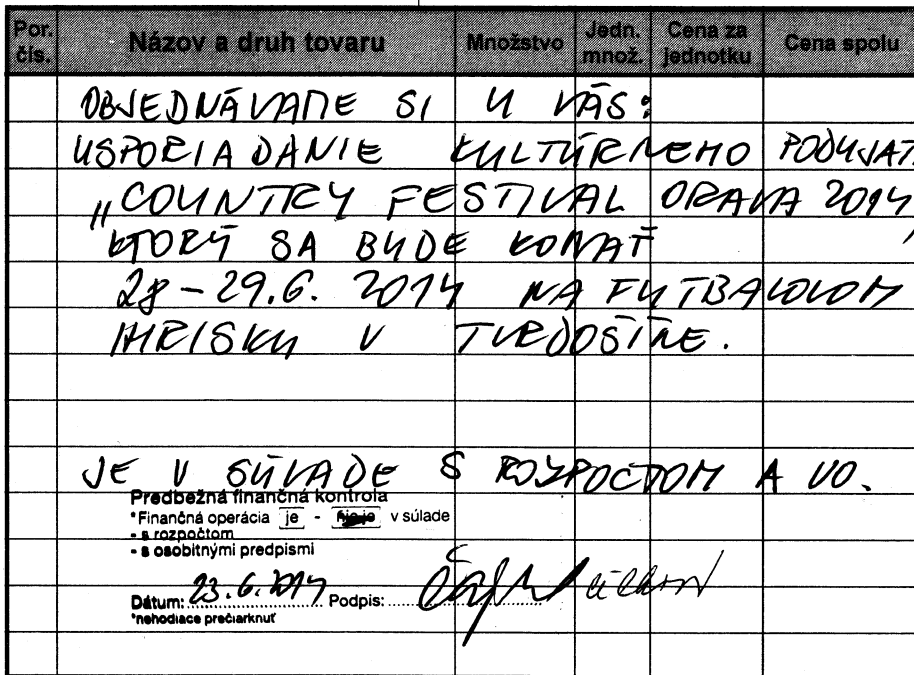 Por. čís. Názov a druh tovaru Množstvo Jedn. množ. Cena za jednotku Cena spolu
OBJEDNÁVAME SI U VÁS:
USPORIADANIE KULTÚRNEHO PODUJAT
„COUNTRY FESTIVAL ORAVA 2014
KTORÝ SA BUDE KONAŤ
28-29.6. 2014 NA FUTBALOVOM
IHRISKU V TVRDOŠÍNE.
JE V SÚLADE S ROZPOČTOM A VO.
Predbežná finančná kontrola
*Finančná operácia je - nie je v súlade
- s rozpočtom
- s osobitnými predpismi
Dátum: 23.6.2014 Podpis:
*nehodiace prečiarknuť